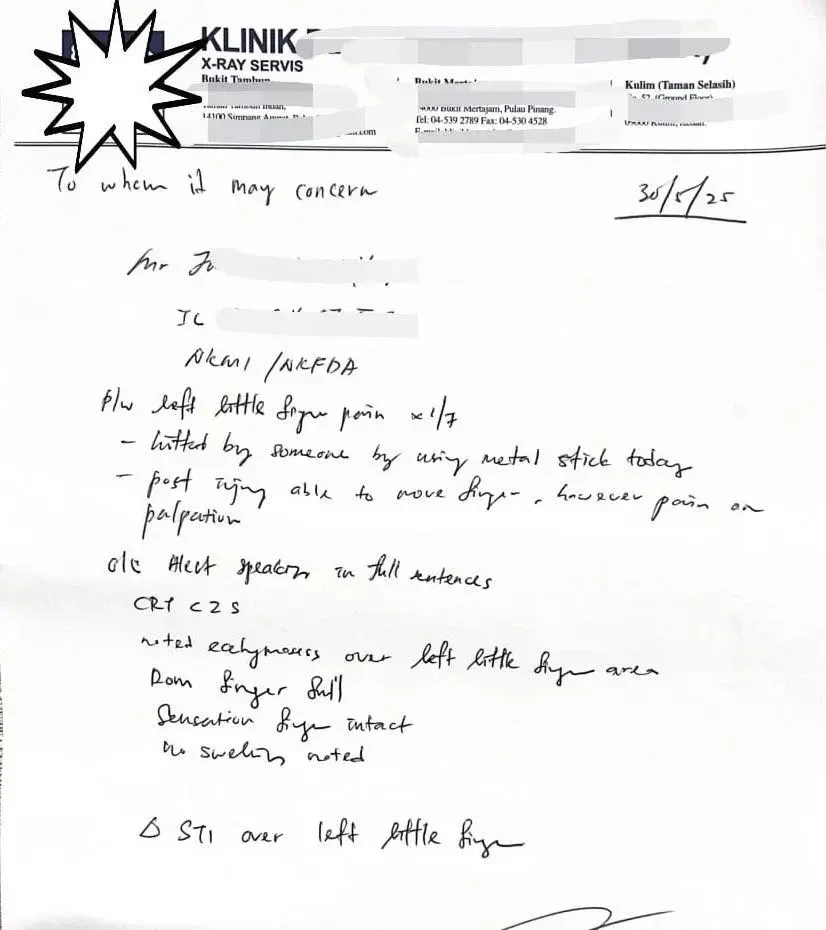 KLINIK
X-RAY SERVIS
Bukit Tambun
Kulim (Taman Selasih)
14100 Simpang
Bukit Mertajam, Pulau Pinang.
Tel: 04-539 2789 Fax: 04-530 4528
.com
To whom it may concern
30/5/25
Mr
IC
NKMI / NKFDA
P/w left little finger pain x 1/7
- hitted by someone by using metal stick today
- post injury able to move finger, however pain on
palpation
o/e Alert speaking in full sentences
CRT < 2 S
noted ecchymoses over left little finger area
Rom finger full
Sensation finger intact
no swelling noted
Δ STI over left little finger